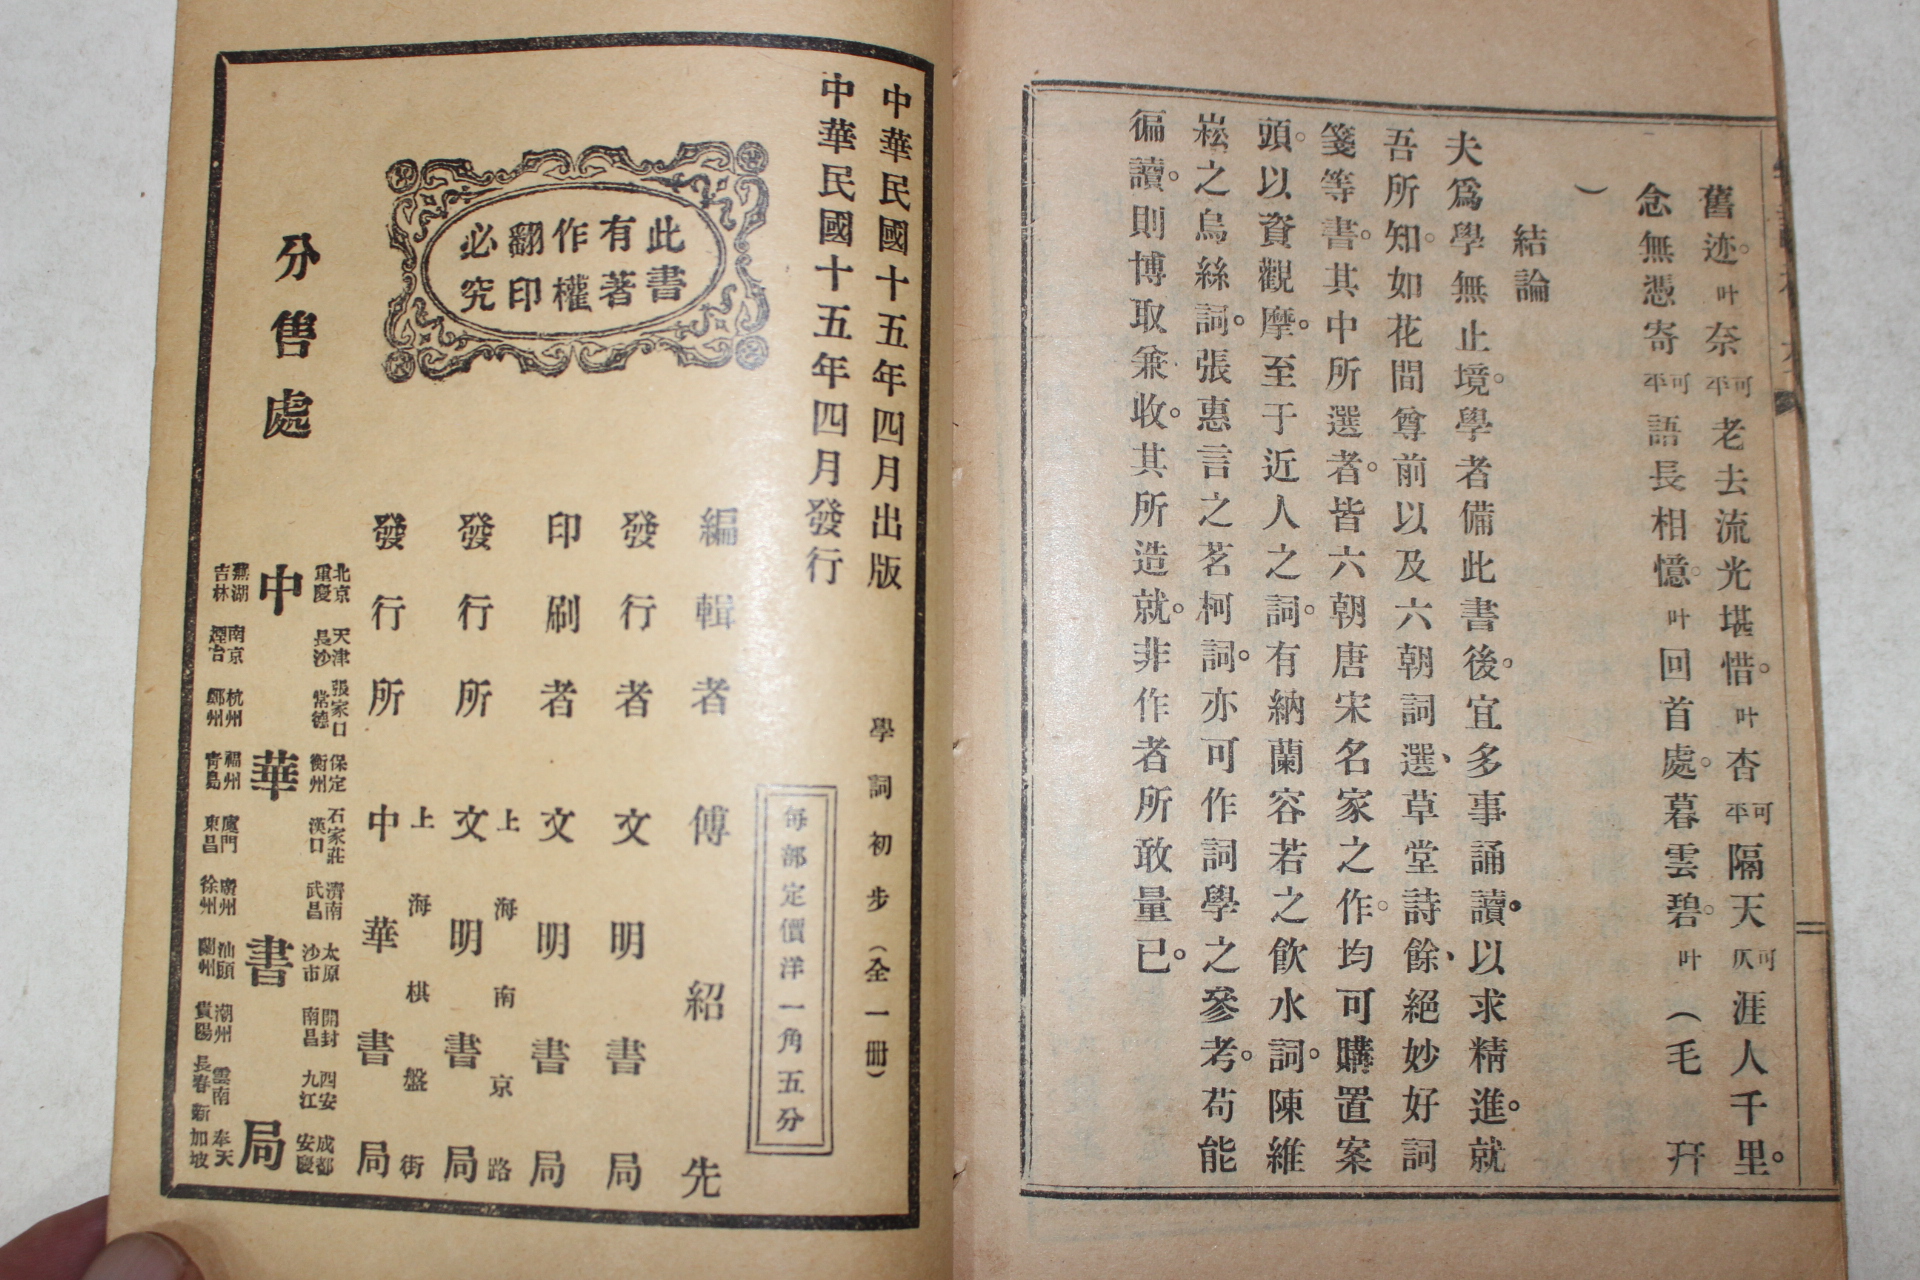 舊迹。叶奈可平老去流光堪惜。叶杏可平隔天可仄涯人千里。
念無憑寄可平語長相憶。叶回首處。暮雲碧。叶（毛𠦑
）
結論
夫爲學無止境。學者備此書後。宜多事誦讀。以求精進。就
吾所知。如花間尊前以及六朝詞選、草堂詩餘、絕妙好詞
箋等書。其中所選者。皆六朝唐宋名家之作。均可購置案
頭。以資觀摩。至于近人之詞。有納蘭容若之飲水詞。陳維
崧之烏絲詞。張惠言之茗柯詞。亦可作詞學之參考。苟能
徧讀。則博取兼收。其所造就。非作者所敢量已。
中華民國十五年四月出版
中華民國十五年四月發行
學詞初步（全一册）
每部定價洋一角五分
此書
有著
作權
翻印
必究
編輯者 傅紹先
發行者 文明書局
印刷者 文明書局
上海南京路
發行所 文明書局
上海棋盤街
發行所 中華書局
分售處
北京 天津 張家口 保定 石家莊 濟南 太原 開封 西安 成都
重慶 長沙 常德 衡州 漢口 武昌 沙市 南昌 九江 安慶
中華書局
蕪湖 南京 杭州 福州 廈門 廣州 汕頭 潮州 雲南 奉天
吉林 煙台 鄭州 青島 東昌 徐州 蘭州 貴陽 長春 新加坡